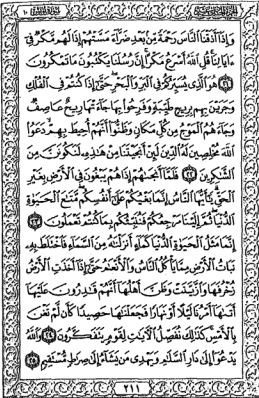 الجزء الحادي عشر سورة يونس ١٠
وَإِذَآ أَذَقْنَا ٱلنَّاسَ رَحْمَةً مِّنۢ بَعْدِ ضَرَّآءَ مَسَّتْهُمْ إِذَا لَهُم مَّكْرٌ فِىٓ
ءَايَاتِنَا قُلِ ٱللَّهُ أَسْرَعُ مَكْرًا إِنَّ رُسُلَنَا يَكْتُبُونَ مَا تَمْكُرُونَ
٢١ هُوَ ٱلَّذِى يُسَيِّرُكُمْ فِى ٱلْبَرِّ وَٱلْبَحْرِ حَتَّىٰٓ إِذَا كُنتُمْ فِى ٱلْفُلْكِ
وَجَرَيْنَ بِهِم بِرِيحٍ طَيِّبَةٍ وَفَرِحُوا۟ بِهَا جَآءَتْهَا رِيحٌ عَاصِفٌ
وَجَآءَهُمُ ٱلْمَوْجُ مِن كُلِّ مَكَانٍ وَظَنُّوٓا۟ أَنَّهُمْ أُحِيطَ بِهِمْ دَعَوُا۟
ٱللَّهَ مُخْلِصِينَ لَهُ ٱلدِّينَ لَئِنْ أَنجَيْتَنَا مِنْ هَٰذِهِۦ لَنَكُونَنَّ مِنَ
ٱلشَّٰكِرِينَ ٢٢ فَلَمَّآ أَنجَىٰهُمْ إِذَا هُمْ يَبْغُونَ فِى ٱلْأَرْضِ بِغَيْرِ
ٱلْحَقِّ يَٰٓأَيُّهَا ٱلنَّاسُ إِنَّمَا بَغْيُكُمْ عَلَىٰٓ أَنفُسِكُم مَّتَٰعَ ٱلْحَيَوٰةِ
ٱلدُّنْيَا ثُمَّ إِلَيْنَا مَرْجِعُكُمْ فَنُنَبِّئُكُم بِمَا كُنتُمْ تَعْمَلُونَ ٢٣
إِنَّمَا مَثَلُ ٱلْحَيَوٰةِ ٱلدُّنْيَا كَمَآءٍ أَنزَلْنَٰهُ مِنَ ٱلسَّمَآءِ فَٱخْتَلَطَ بِهِۦ
نَبَاتُ ٱلْأَرْضِ مِمَّا يَأْكُلُ ٱلنَّاسُ وَٱلْأَنْعَٰمُ حَتَّىٰٓ إِذَآ أَخَذَتِ ٱلْأَرْضُ
زُخْرُفَهَا وَٱزَّيَّنَتْ وَظَنَّ أَهْلُهَآ أَنَّهُمْ قَٰدِرُونَ عَلَيْهَآ
أَتَىٰهَآ أَمْرُنَا لَيْلًا أَوْ نَهَارًا فَجَعَلْنَٰهَا حَصِيدًا كَأَن لَّمْ تَغْنَ
بِٱلْأَمْسِ كَذَٰلِكَ نُفَصِّلُ ٱلْءَايَٰتِ لِقَوْمٍ يَتَفَكَّرُونَ ٢٤ وَٱللَّهُ
يَدْعُوٓا۟ إِلَىٰ دَارِ ٱلسَّلَٰمِ وَيَهْدِى مَن يَشَآءُ إِلَىٰ صِرَٰطٍ مُّسْتَقِيمٍ ٢٥
٢١١